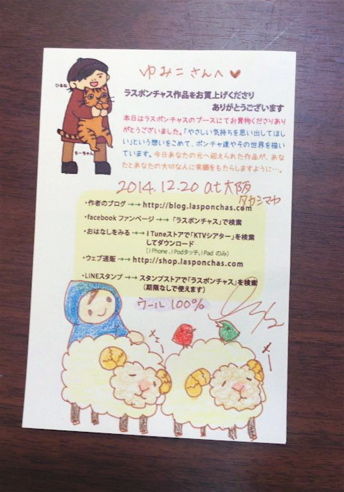 ゆみこさんへ♥
ひるね
ちーちゃん
ラスポンチャス作品をお買上げくださり
ありがとうございます
本日はラスポンチャスのブースにてお買物くださりあり
がとうございました。「やさしい気持ちを思い出してほし
い」という想いをこめて、ポンチャ達やその世界を描い
ています。今日あなたの元へ迎えられた作品が、あな
たとあなたの大切な人に笑顔をもたらしますように…。
2014.12.20 at 大阪
タカシマヤ
・作者のブログ →→ http://blog.lasponchas.com
・facebook ファンページ →→「ラスポンチャス」で検索
・おはなしをみる →→ iTuneストアで「KTVシアター」を検索
してダウンロード
(iPhone、iPodタッチ、iPad のみ)
・ウェブ通販 →→ http://shop.lasponchas.com
・LINEスタンプ →→ スタンプストアで「ラスポンチャス」を検索
(期限なしで使えます)
ウール100%